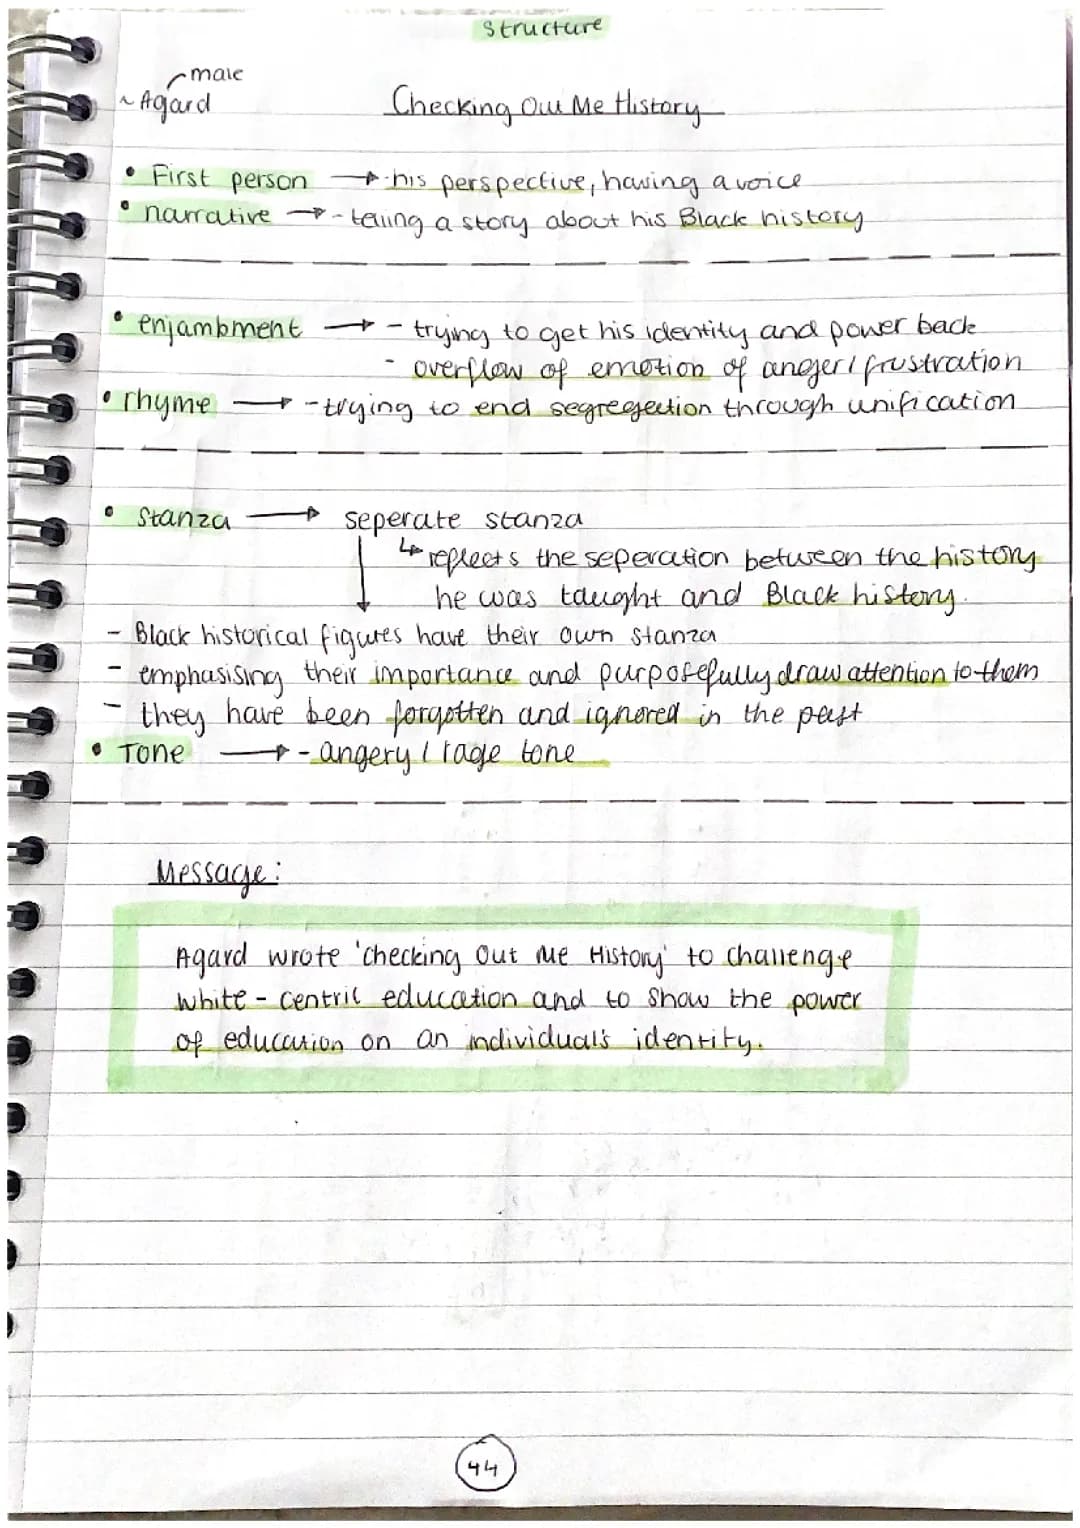 Structure
male
~ Agard
Checking Out Me History
• First person → - his perspective, having a voice
• narrative → - telling a story about his Black history
• enjambment → - trying to get his identity and power back
- overflow of emotion of anger / frustration
• rhyme → - trying to end segregection through unification
• Stanza → seperate stanza
↳ reflects the seperation between the history
he was taught and Black history.
- Black historical figures have their own stanza
- emphasising their importance and purposefully draw attention to them
- they have been forgotten and ignored in the past
• Tone → - angery / rage tone
Message:
Agard wrote 'Checking Out Me History' to challenge
white - centric education and to show the power
of education on an individual's identity.
44